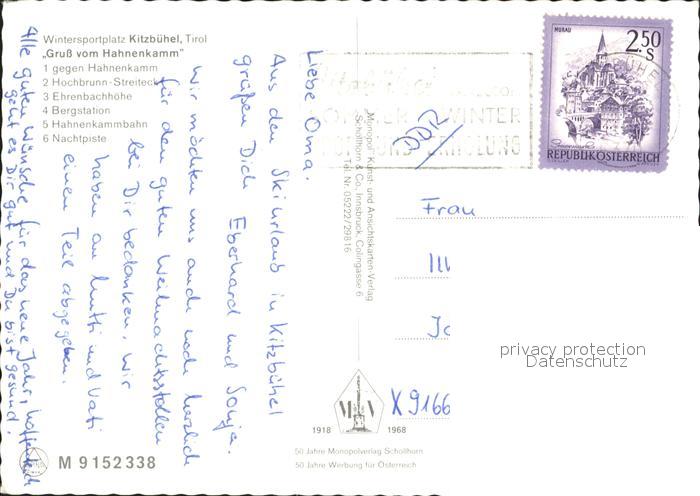 Wintersportplatz Kitzbühel, Tirol
„Gruß vom Hahnenkamm"
1 gegen Hahnenkamm
2 Hochbrunn-Streiteck
3 Ehrenbachhöhe
4 Bergstation
5 Hahnenkammbahn
6 Nachtpiste
Liebe Oma.
Aus den Skiurlaub in Kitzbühel
grüßen Dich Eberhard und Sonja.
Wir möchten uns auch noch herzlich
für den guten Weihnachtsstollen
bei Dir bedanken, wir
haben an Mutti und Vati
einen Teil abgegeben.
Alle guten Wünsche für das neue Jahr, hoffentlich
geht es Dir gut und Du bist gesund.
"Monopol" Kunst- und Ansichtskarten-Verlag
Schöllhorn & Co., Innsbruck, Colingasse 6
Tel. Nr. 05222/29816
SOMMER WINTER
SPORT UND ERHOLUNG
MURAU
2.50
S
REPUBLIK ÖSTERREICH
Frau
X 9166
privacy protection
Datenschutz
1918
1968
50 Jahre Monopolverlag Schöllhorn
50 Jahre Werbung für Österreich
M 9152338